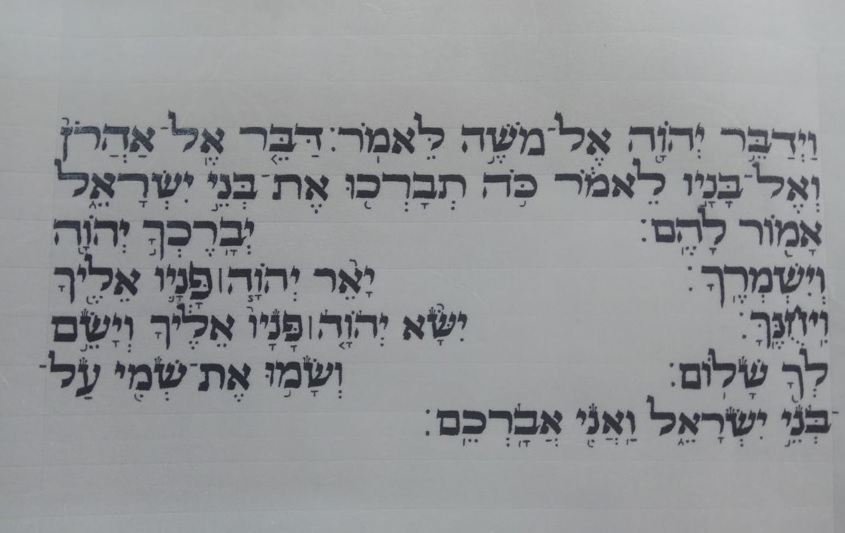 וַיְדַבֵּ֥ר יְהוָ֖ה אֶל־מֹשֶׁ֥ה לֵּאמֹֽר׃ דַּבֵּ֤ר אֶֽל־אַהֲרֹן֙
וְאֶל־בָּנָ֣יו לֵאמֹ֔ר כֹּ֥ה תְבָרְכ֖וּ אֶת־בְּנֵ֣י יִשְׂרָאֵ֑ל
אָמ֖וֹר לָהֶֽם׃ יְבָרֶכְךָ֥ יְהוָ֖ה
וְיִשְׁמְרֶֽךָ׃ יָאֵ֨ר יְהוָ֧ה׀פָּנָ֛יו אֵלֶ֖יךָ
וִֽיחֻנֶּֽךָּ׃ יִשָּׂ֨א יְהוָ֤ה׀פָּנָיו֙ אֵלֶ֔יךָ וְיָשֵׂ֥ם
לְךָ֖ שָׁלֽוֹם׃ וְשָׂמ֥וּ אֶת־שְׁמִ֖י עַל־
־בְּנֵ֣י יִשְׂרָאֵ֑ל וַאֲנִ֖י אֲבָרְכֵֽם׃